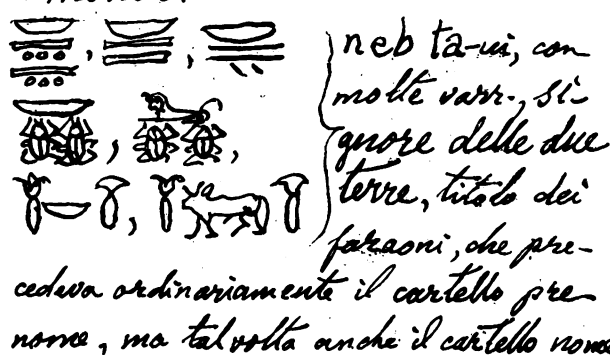 neb ta-ui, con
molte varr., si-
gnore delle due
terre, titolo dei
faraoni, che pre-
cedeva ordinariamente il cartello pre-
nome, ma talvolta anche il cartello nome